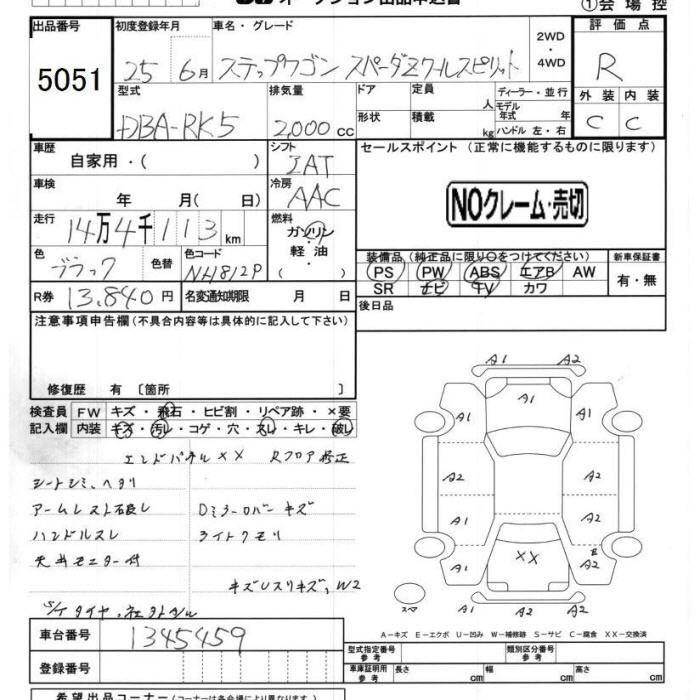 ①会 場 控
出品番号
5051
初度登録年月
25 6月
車名・グレード
ステップワゴン スパーダZクールスピリット
2WD
・
4WD
評 価 点
R
外 装 内 装
C C
型式
DBA-RK5
排気量
2,000 cc
ドア 定員 人
形状 積載 kg
ディーラー・並行
モデル年式 年
ハンドル 左・右
車歴
自家用・( )
シフト
IAT
車検
年 月( 日)
冷房
AAC
走行
14万4千113km
燃料
ガソリン
軽・油
( )
色
ブラック
色替
色コード
NH812P
R券 13,840円
名変通知期限 月 日
セールスポイント (正常に機能するものに限ります)
NOクレーム・売切
装備品(純正品に限り○をつけてください)
PS PW ABS エアB AW
SR ナビ TV カワ
新車保証書
有・無
後日品
注意事項申告欄(不具合内容等は具体的に記入して下さい)
修復歴 有 〔箇所 〕
検査員
記入欄
FW キズ・飛石・ヒビ割・リペア跡・×要
内装 キズ・汚レ・コゲ・穴・スレ・キレ・破レ
エンドパネルXX Rフロア修正
シートシミ、ヘタリ
アームレスト破レ Dミラーカバーキズ
ハンドルスレ ライトクモリ
天井モニター付
キズUスリキズ,W2
S/Tタイヤ,
A1 A2
A1
A1 A1
A2 A2
A1 A2
XX
A2
B
A2
A1 A2
スマ
A-キズ E-エクボ U-凹み W-補修跡 S-サビ C-腐食 XX-交換済
車台番号 1345459
登録番号
型式指定番号
参 考
類別区分番号
参 考
車庫証明用
参 考
長さ cm 幅 cm 高さ cm
希望出品コーナー